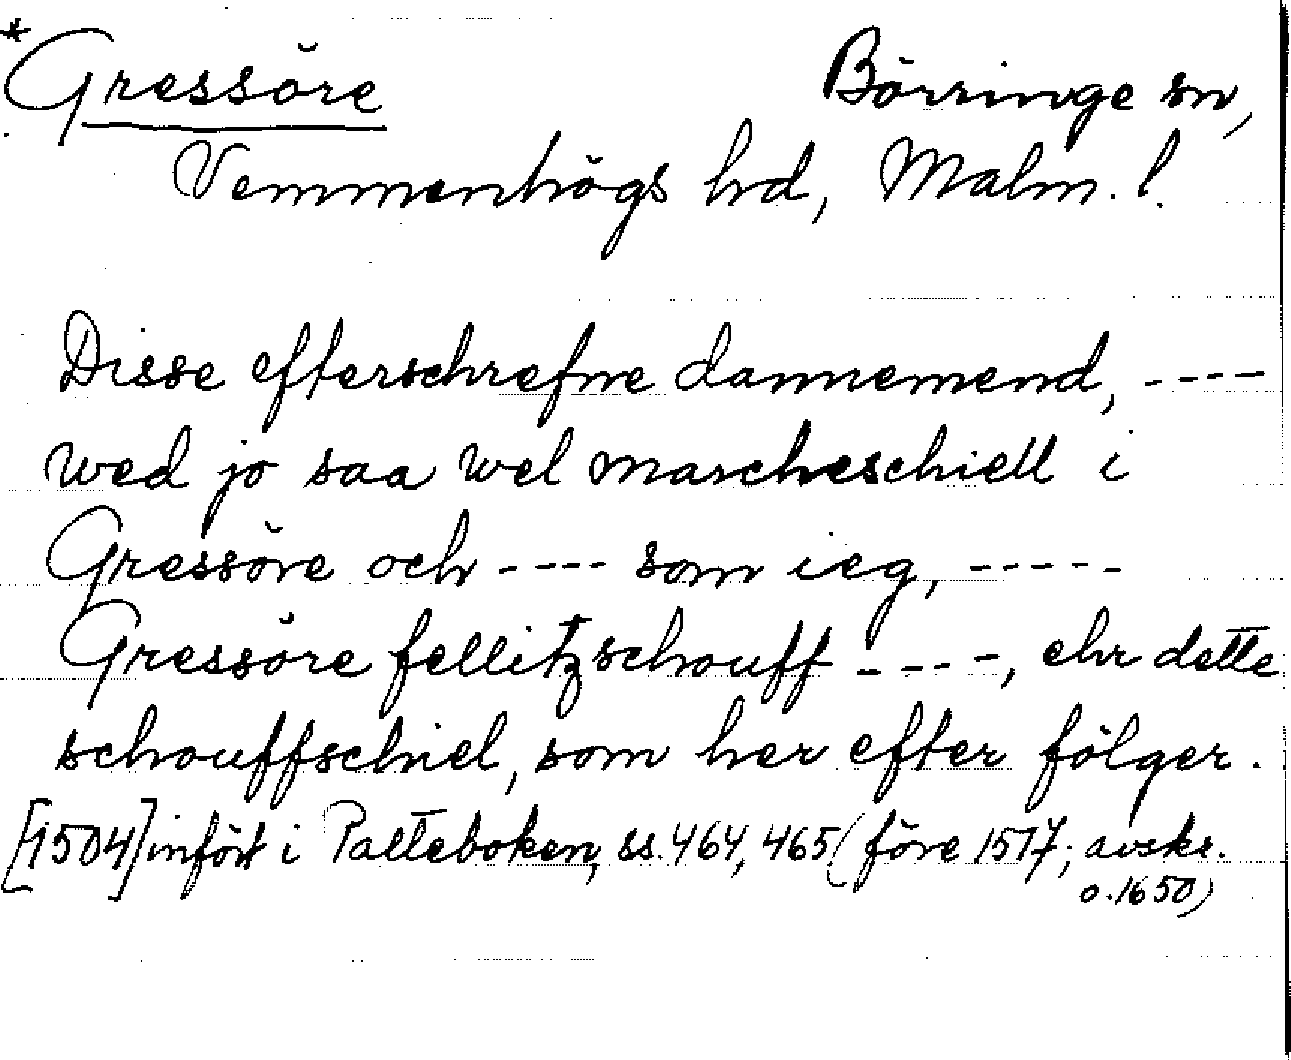 *Gressöre Börringe sn,
Vemmenhögs hd, Malm. l.
Disse efterschrefne dannemend, ----
wed jo saa wel marcheschiell i
Gressöre och ---- som ieg, -----
Gressöre fellitzschouff ----, ehr dette
schouffschiel, som her efter fölger.
[1504] infört i Palteboken, ss. 464, 465 (före 1517; avskr.
o. 1650)